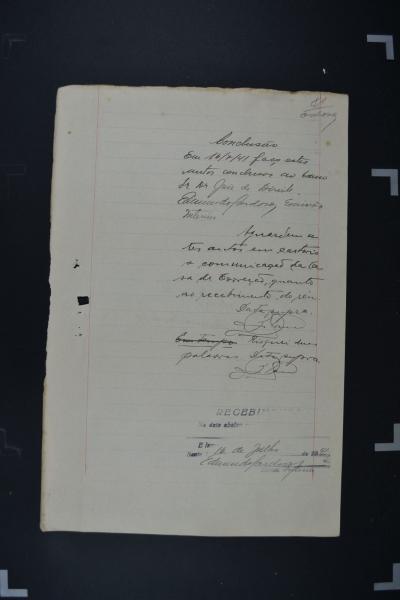 81
Conclusão
Em 16/7/41 faço estes
autos conclusos ao
Sr. Dr. Juiz de Direito.
Edmundo Cardoso, Escrivão
Interino
Aguardem-se
tes autos em cartorio
a comunicação da Ca
sa de Correção, quanto
ao recebimento do réu.
Data supra.
Em tempo Risquei duas
palavras. Data supra.
RECEBI
Na data abaixo
16 de Julho de 19
Edmundo Cardoso